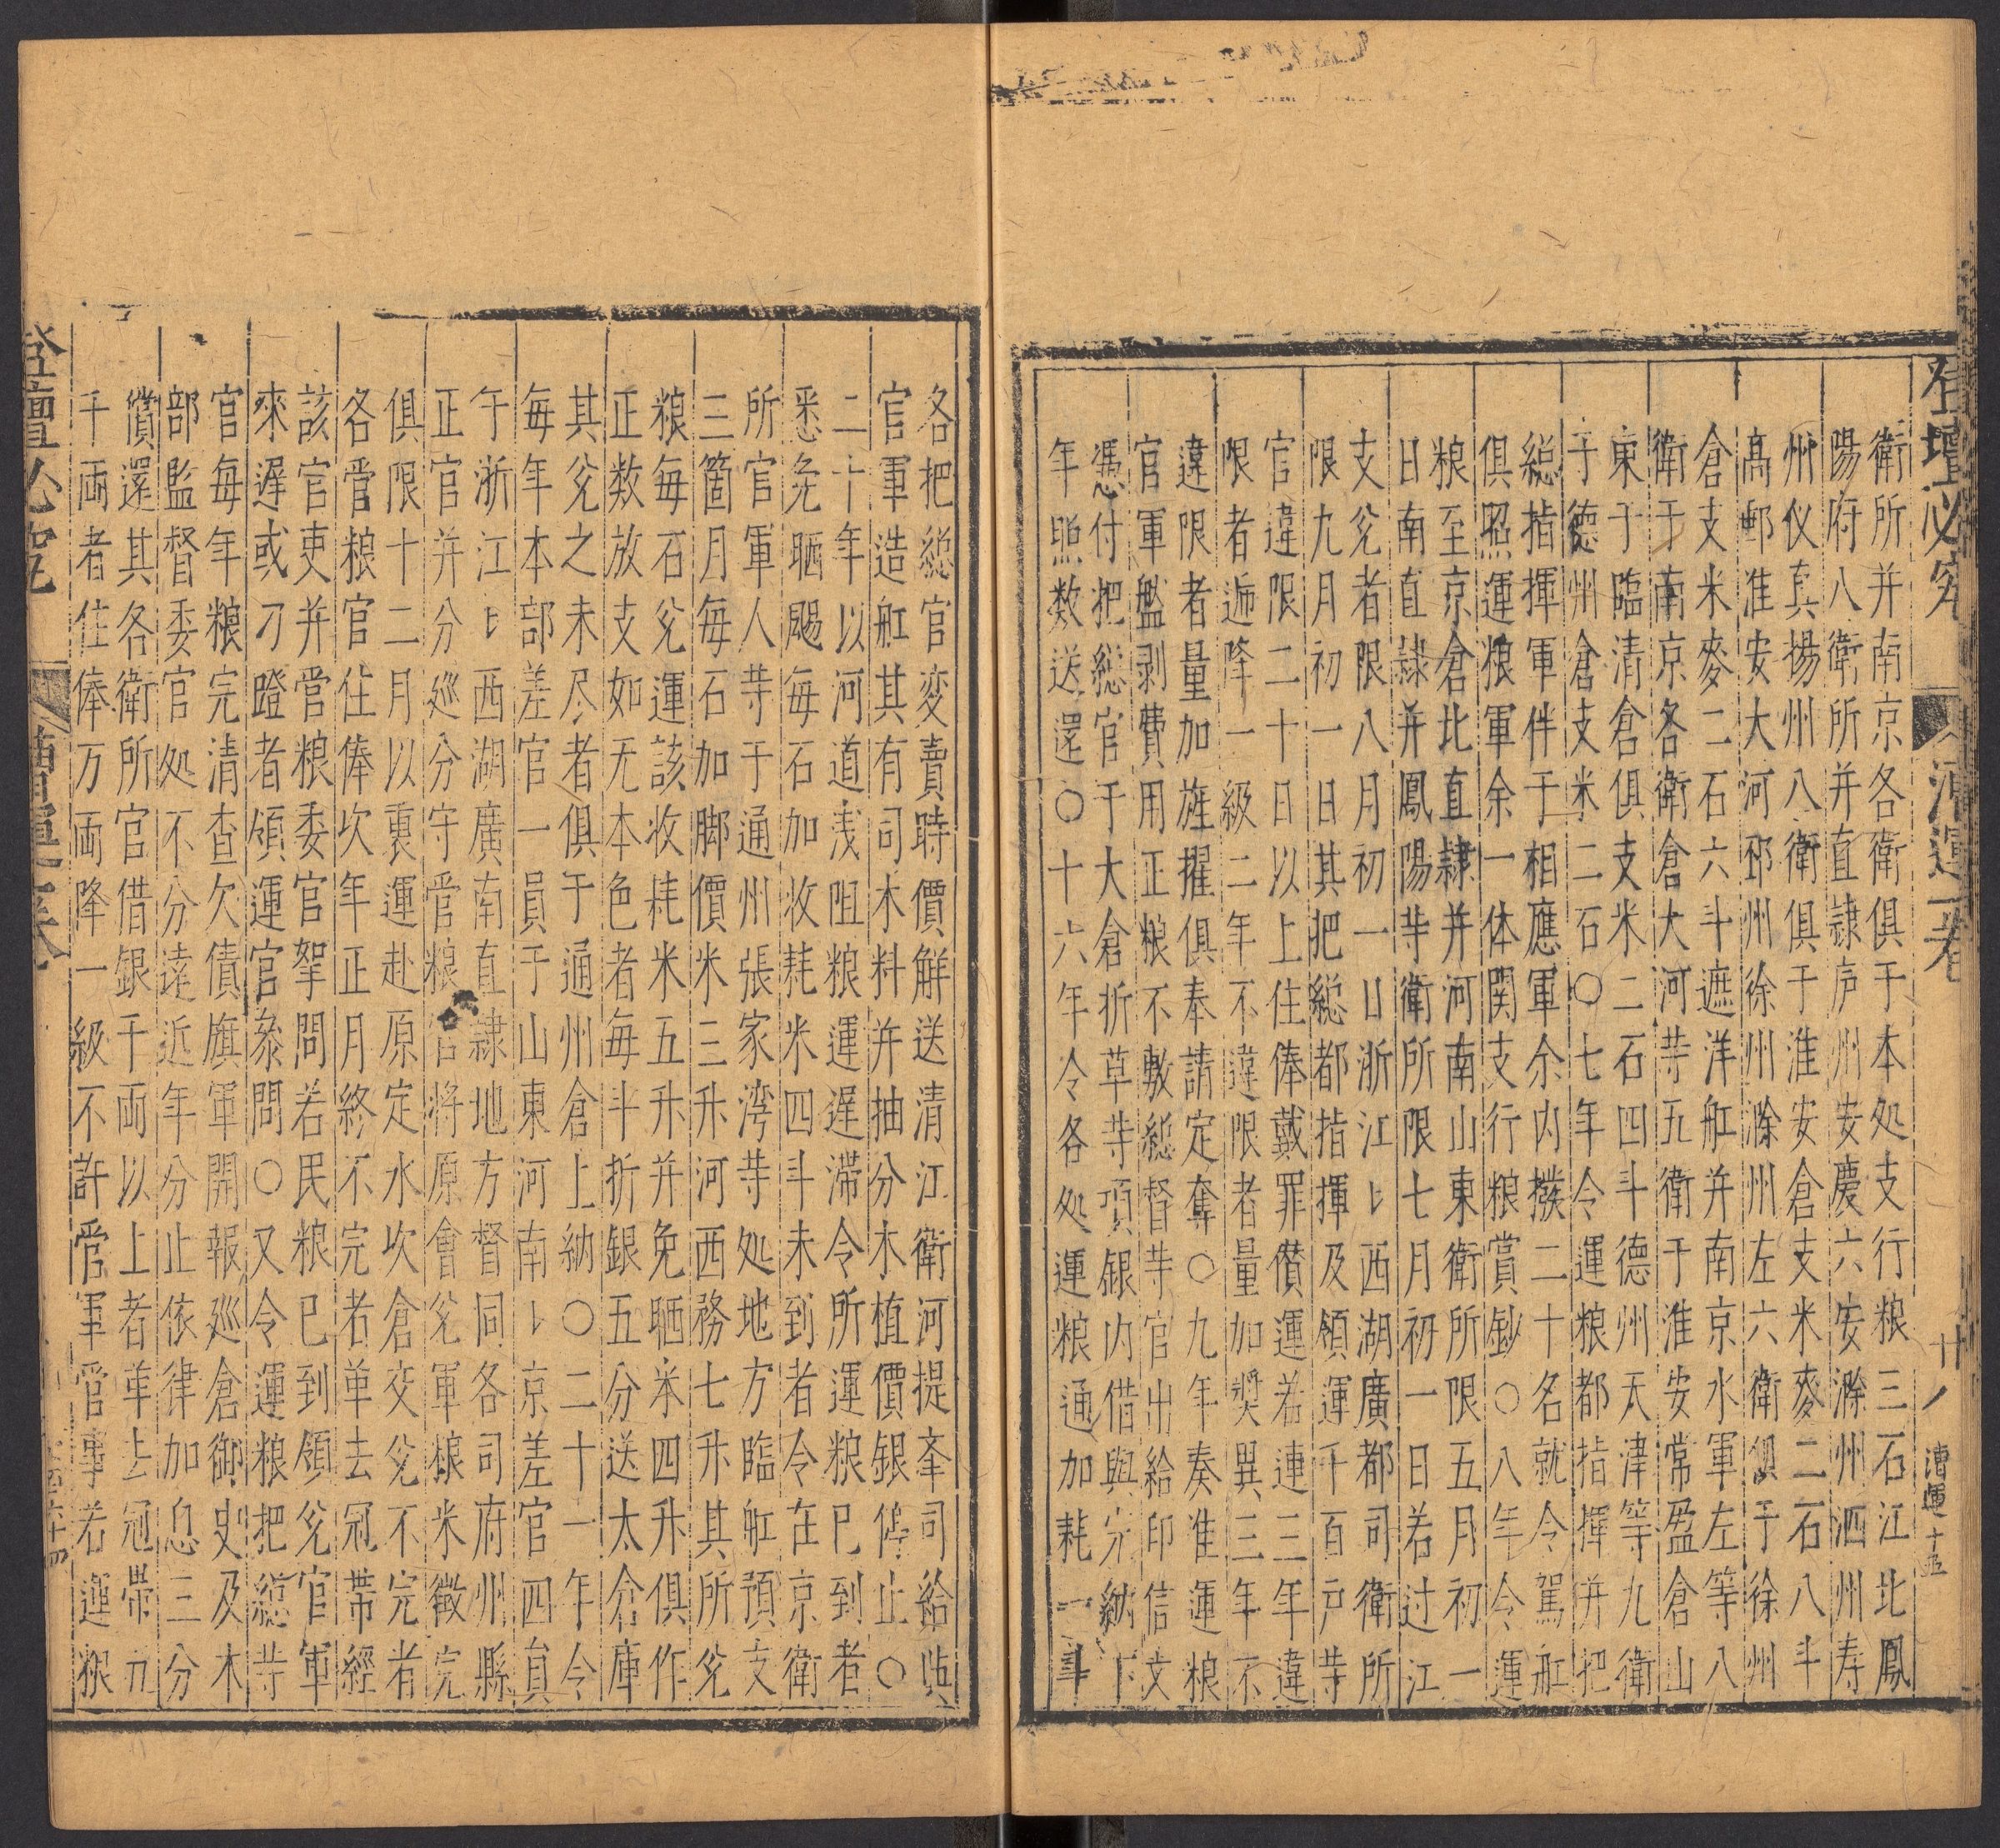 登壇必究
漕運一卷
廿八
漕運十五
衛所并南京各衛俱于本处支行粮三石江北鳳
陽府八衛所并直隷庐州安慶六安滁州泗州寿
州仪真揚州八衛俱于淮安倉支米麥二石八斗
高郵淮安大河邳州徐州滁州左六衛俱于徐州
倉支米麥二石六斗遮洋舡并南京水軍左等八
衛于南京各衛倉大河䓁五衛于淮安常盈倉山
東于臨清倉俱支米二石四斗德州天津等九衛
于德州倉支米二石〇七年令運粮都指揮并把
総指揮軍件于相應軍余内撥二十名就令駕舡
俱照運粮軍余一体関支行粮賞鈔〇八年令運
粮至京倉北直隷并河南山東衛所限五月初一
日南直隷并鳳陽䓁衛所限七月初一日若过江
支兌者限八月初一日浙江江西湖廣都司衛所
限九月初一日其把総都指揮及領運千百户䓁
官違限二十日以上住俸戴罪儹運若連三年違
限者逓降一級二年不違限者量加奨異三年不
違限者量加旌擢俱奉請定奪〇九年奏准運粮
官軍盤剥費用正粮不敷総督䓁官出給印信文
憑付把総官于大倉折草䓁項銀内借與完納下
年照数送還〇十六年令各处運粮通加耗一斗
各把総官变賣時價解送清江衛河提夆司給與
官軍造舡其有司木料并抽分木植價銀俱止〇
二十年以河道浅阻粮運遅滯令所運粮已到者
悉免晒颺每石加收耗米四斗未到者令在京衛
所官軍人䓁于通州張家湾䓁处地方臨舡預支
三箇月每石加脚價米三升河西務七升其所兌
粮每石兌運該收耗米五升并免晒米四升俱作
正数放支如无本色者每斗折銀五分送太仓庫
其兌之未尽者俱于通州倉上納〇二十一年令
每年本部差官一員于山東河南南京差官四員
于浙江江西湖廣南直隷地方督同各司府州縣
正官并分巡分守管粮官将原會兌軍粮米徵完
俱限十二月以裏運赴原定水次倉交兌不完者
各管粮官住俸次年正月終不完者革去冠帯經
該官吏并管粮委官拏問若民粮已到領兌官軍
來遅或刁蹬者領運官叅問〇又令運粮把総䓁
官每年粮完清查欠債旗軍開報巡倉御史及本
部監督委官处不分遠近年分止依律加息三分
償還其各衛所官借銀千兩以上者革去冠帯五
千両者住俸万両降一級不許管軍管事若運粮
登壇必究
漕運一卷